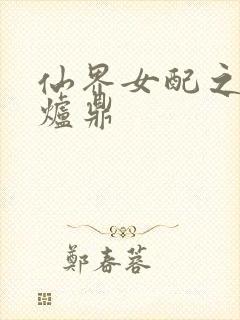 仙界女配之
爐鼎
鄭春蓉